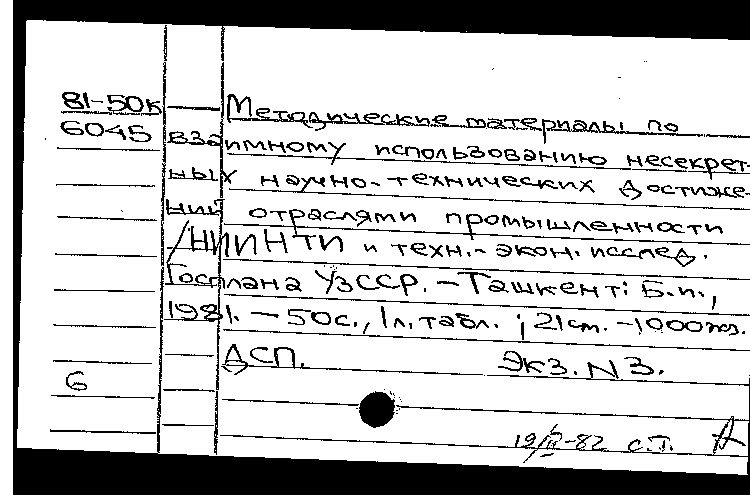 81-50к — Методические материалы по
6045 взаимному использованию несекрет-
ных научно-технических достиже-
ний отраслями промышленности
/НИИНТИ и техн.-экон. исслед.
Госплана УзССР. — Ташкент: Б.и.,
1981. — 50с., 1л. табл. ; 21см. -1000экз.
ДСП. Экз. N3.
6
19/II-82 с.т. А